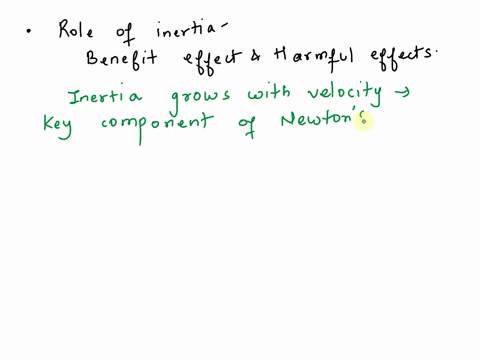 • Role of inertia-
Benefit effect & Harmful effects.
Inertia grows with velocity →
Key component of Newton's